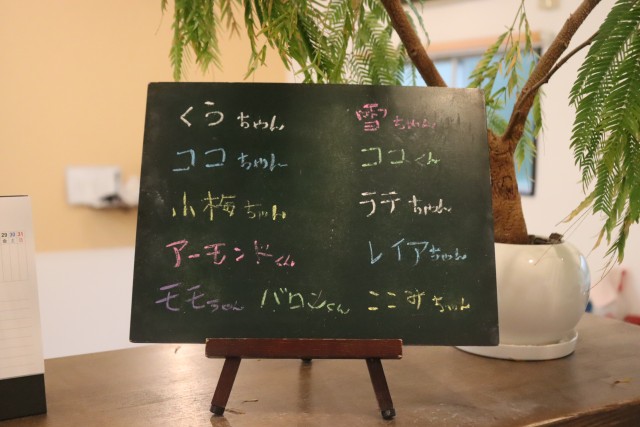 くうちゃん 雪ちゃん
ココちゃん ココくん
小梅ちゃん ラテちゃん
アーモンドくん レイアちゃん
モモちゃん バロンくん ここみちゃん
29 30 31